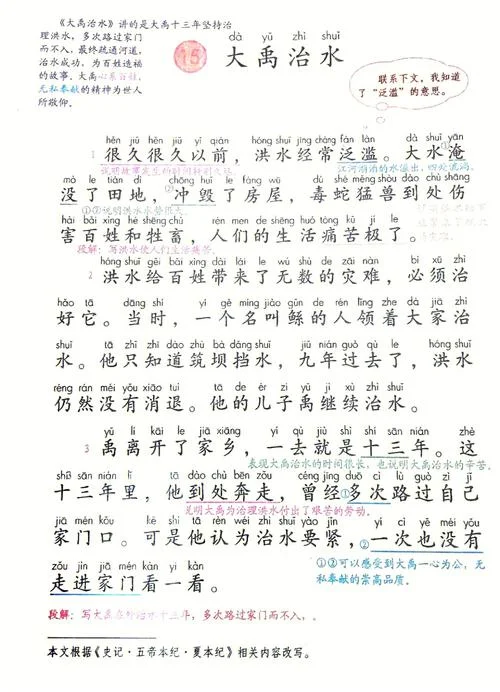 《大禹治水》讲的是大禹十三年坚持治
理洪水，多次路过家门
而不入，最终疏通河道，
治水成功，为百姓造福
的故事。大禹心系百姓，
无私奉献的精神为世人
所敬仰。
dà yǔ zhì shuǐ
15 大禹治水
联系下文，我知道
了“泛滥”的意思。
hěn jiǔ hěn jiǔ yǐ qián hóng shuǐ jīng cháng fàn làn dà shuǐ yān
1 很久很久以前，洪水经常泛滥。大水淹
说明故事发生的时间特别久远。
江河湖泊的水溢出，四处流淌。
mò le tián dì chōng huǐ le fáng wū dú shé měng shòu dào chù shāng
没了田地，冲毁了房屋，毒蛇猛兽到处伤
hài bǎi xìng hé shēng chù rén men de shēng huó tòng kǔ jí le
害百姓和牲畜，人们的生活痛苦极了。
段解：写洪水使人们生活痛苦。
hóng shuǐ gěi bǎi xìng dài lái le wú shù de zāi nàn bì xū zhì
2 洪水给百姓带来了无数的灾难，必须治
hǎo tā dāng shí yí gè míng jiào gǔn de rén lǐng zhe dà jiā zhì
好它。当时，一个名叫鲧的人领着大家治
shuǐ tā zhǐ zhī dào zhù bà dǎng shuǐ jiǔ nián guò qù le hóng shuǐ
水。他只知道筑坝挡水，九年过去了，洪水
réng rán méi yǒu xiāo tuì tā de ér zi yǔ jì xù zhì shuǐ
仍然没有消退。他的儿子禹继续治水。
yǔ lí kāi le jiā xiāng yí qù jiù shì shí sān nián zhè
3 禹离开了家乡，一去就是十三年。这
表现大禹治水的时间很长，也说明大禹治水的辛苦。
shí sān nián lǐ tā dào chù bēn zǒu céng jīng duō cì lù guò zì jǐ
十三年里，他到处奔走，曾经①多次路过自己
说明大禹为治理洪水付出了艰苦的劳动。
jiā mén kǒu kě shì tā rèn wéi zhì shuǐ yào jǐn yí cì yě méi yǒu
家门口。可是他认为治水要紧，②一次也没有
①②可以感受到大禹一心为公，无
私奉献的崇高品质。
zǒu jìn jiā mén kàn yí kàn
走进家门看一看。
段解：写大禹在外治水十三年，多次路过家门而不入。
本文根据《史记·五帝本纪·夏本纪》相关内容改写。